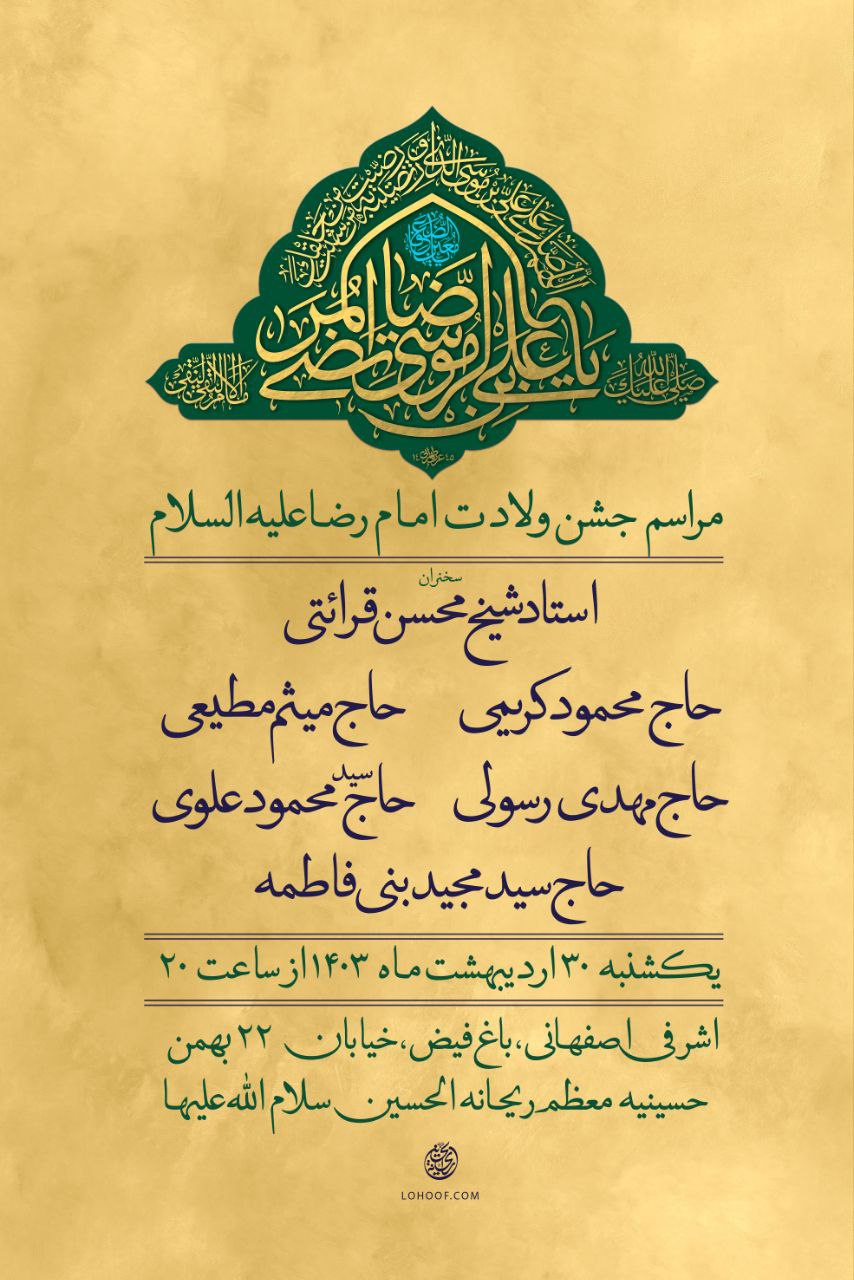 یا علی بن موسی الرضا المرتضی
صلی الله علیک
الامام التقی النقی
مراسم جشن ولادت امام رضا علیه السلام
سخنران
استاد شیخ محسن قرائتی
حاج محمود کریمی    حاج میثم مطیعی
حاج مهدی رسولی    حاج سید محمود علوی
حاج سید مجید بنی فاطمه
یکشنبه ۳۰ اردیبهشت ماه ۱۴۰۳ از ساعت ۲۰
اشرفی اصفهانی، باغ فیض، خیابان ۲۲ بهمن
حسینیه معظم ریحانه الحسین سلام الله علیها
LOHOOF.COM